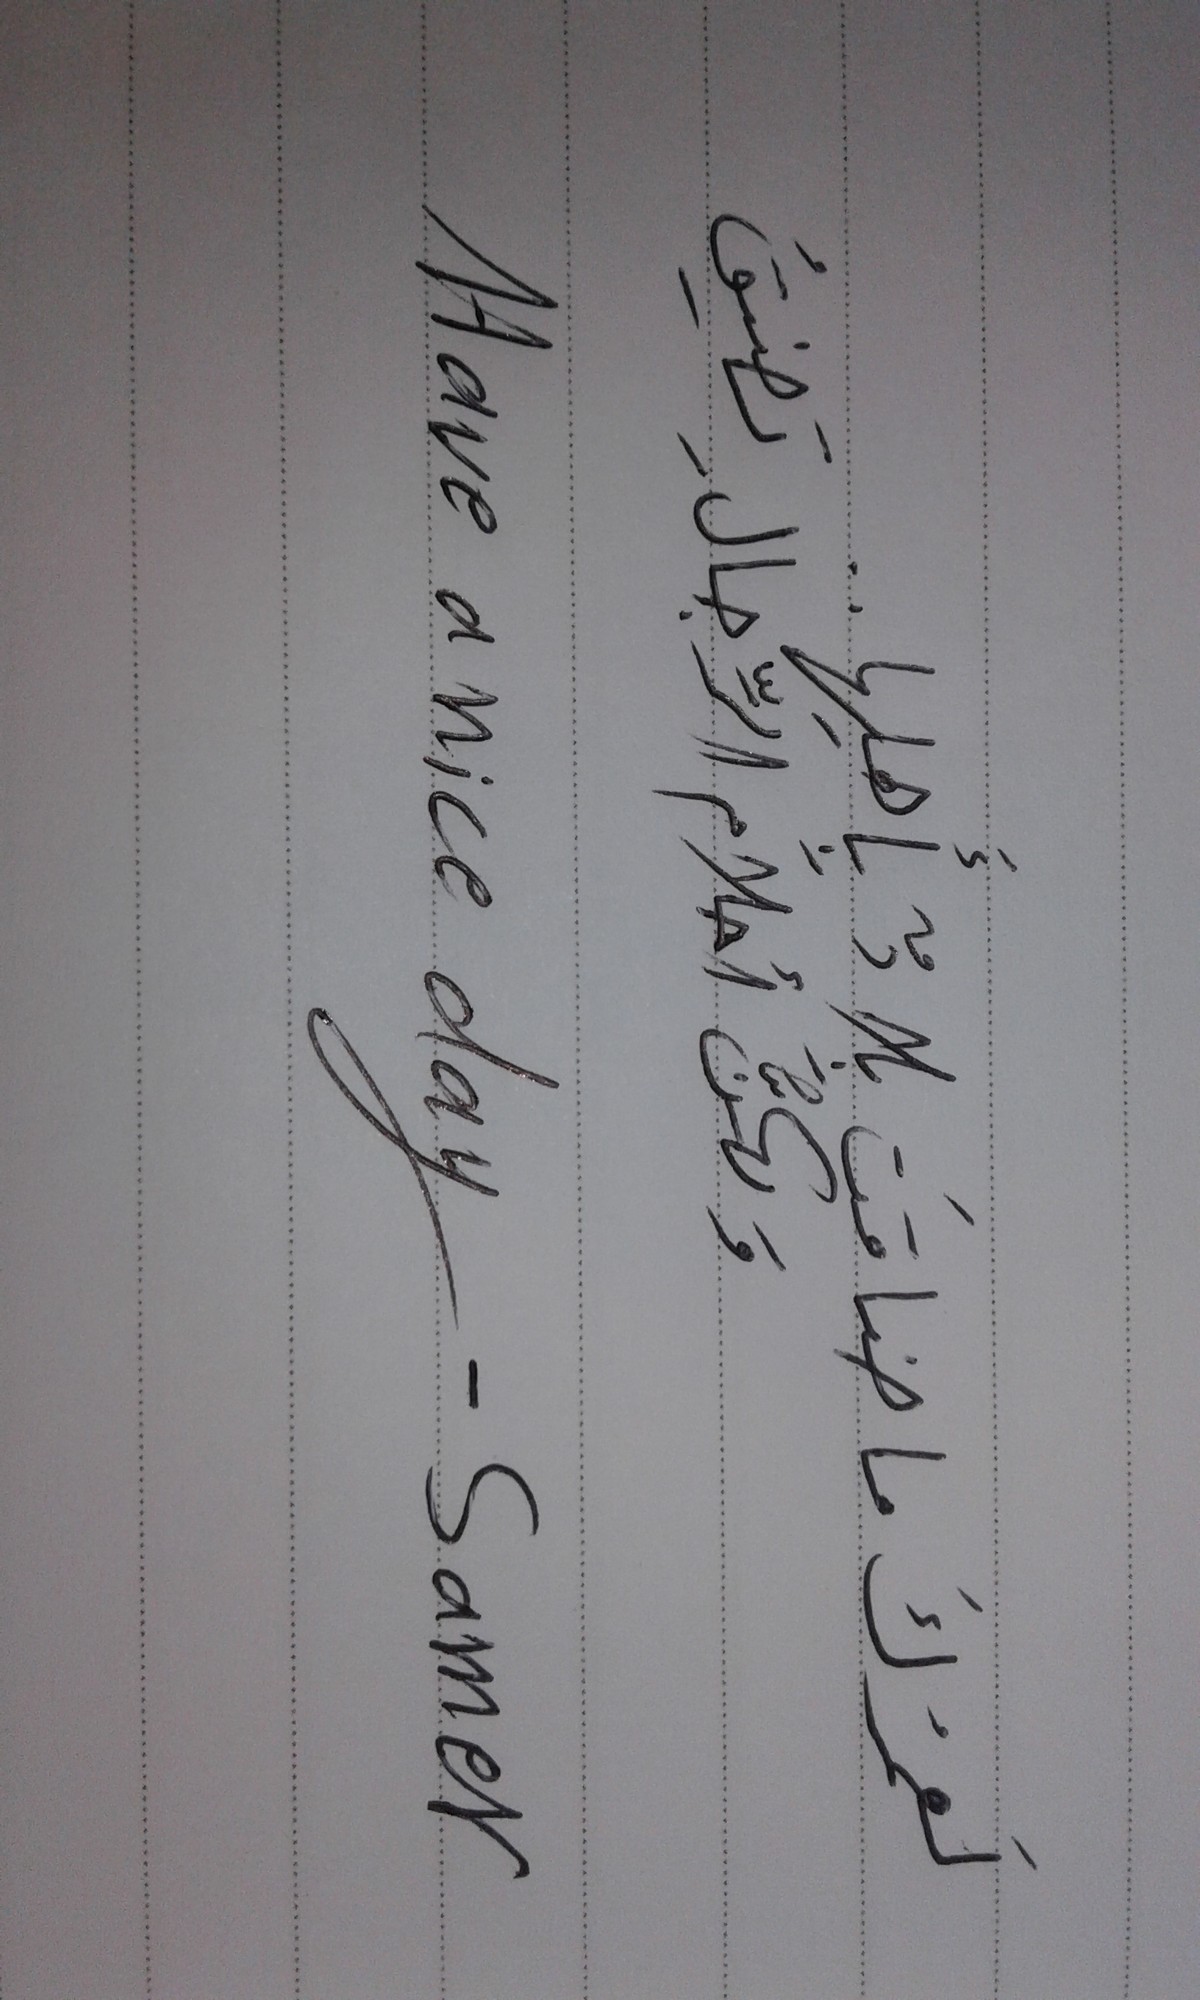 لَعمرُكَ ما ضاقَت بلادٌ بأَهلِها ..
وَلكنَّ أَحلامَ الرِّجالِ تَضيقُ
Have a nice day - Samer